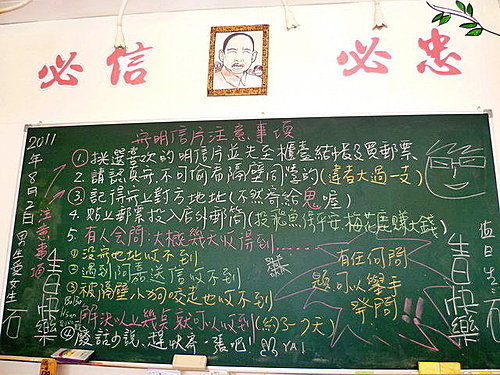 必 信
必 忠
2011年8月2日
寄明信片注意事項
①挑選喜歡的明信片並先至櫃臺結帳及買郵票
2.請認真寫.不可偷看隔壁同學的(違者大過一支)
③.記得寫上對方地址(不然寄給鬼喔)
4.貼上郵票投入店外郵筒(投飛魚保平安,梅花鹿賺大錢)
5.有人会問:大概幾天收得到......
①沒寫地址收不到
②遇到阿嘉送信收不到
③被隔壁小狗咬走也收不到
解決以上幾点就可以收到(約3~7天)
④廢話少說,趕快寄一張吧! YA!
注意事項
男生愛女生
生日快樂
有任何問
題可以舉手
發問!!
生日快樂
值日生:
石